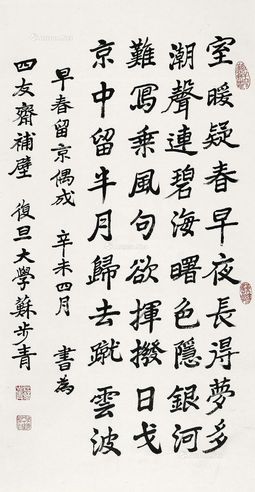 室暖疑春早夜長得夢多
潮聲連碧海曙色隱銀河
難寫乘風句欲揮撥日戈
京中留半月歸去蹴雲波
早春留京偶成 辛未四月 書為
四友齋補壁 復旦大學蘇步青